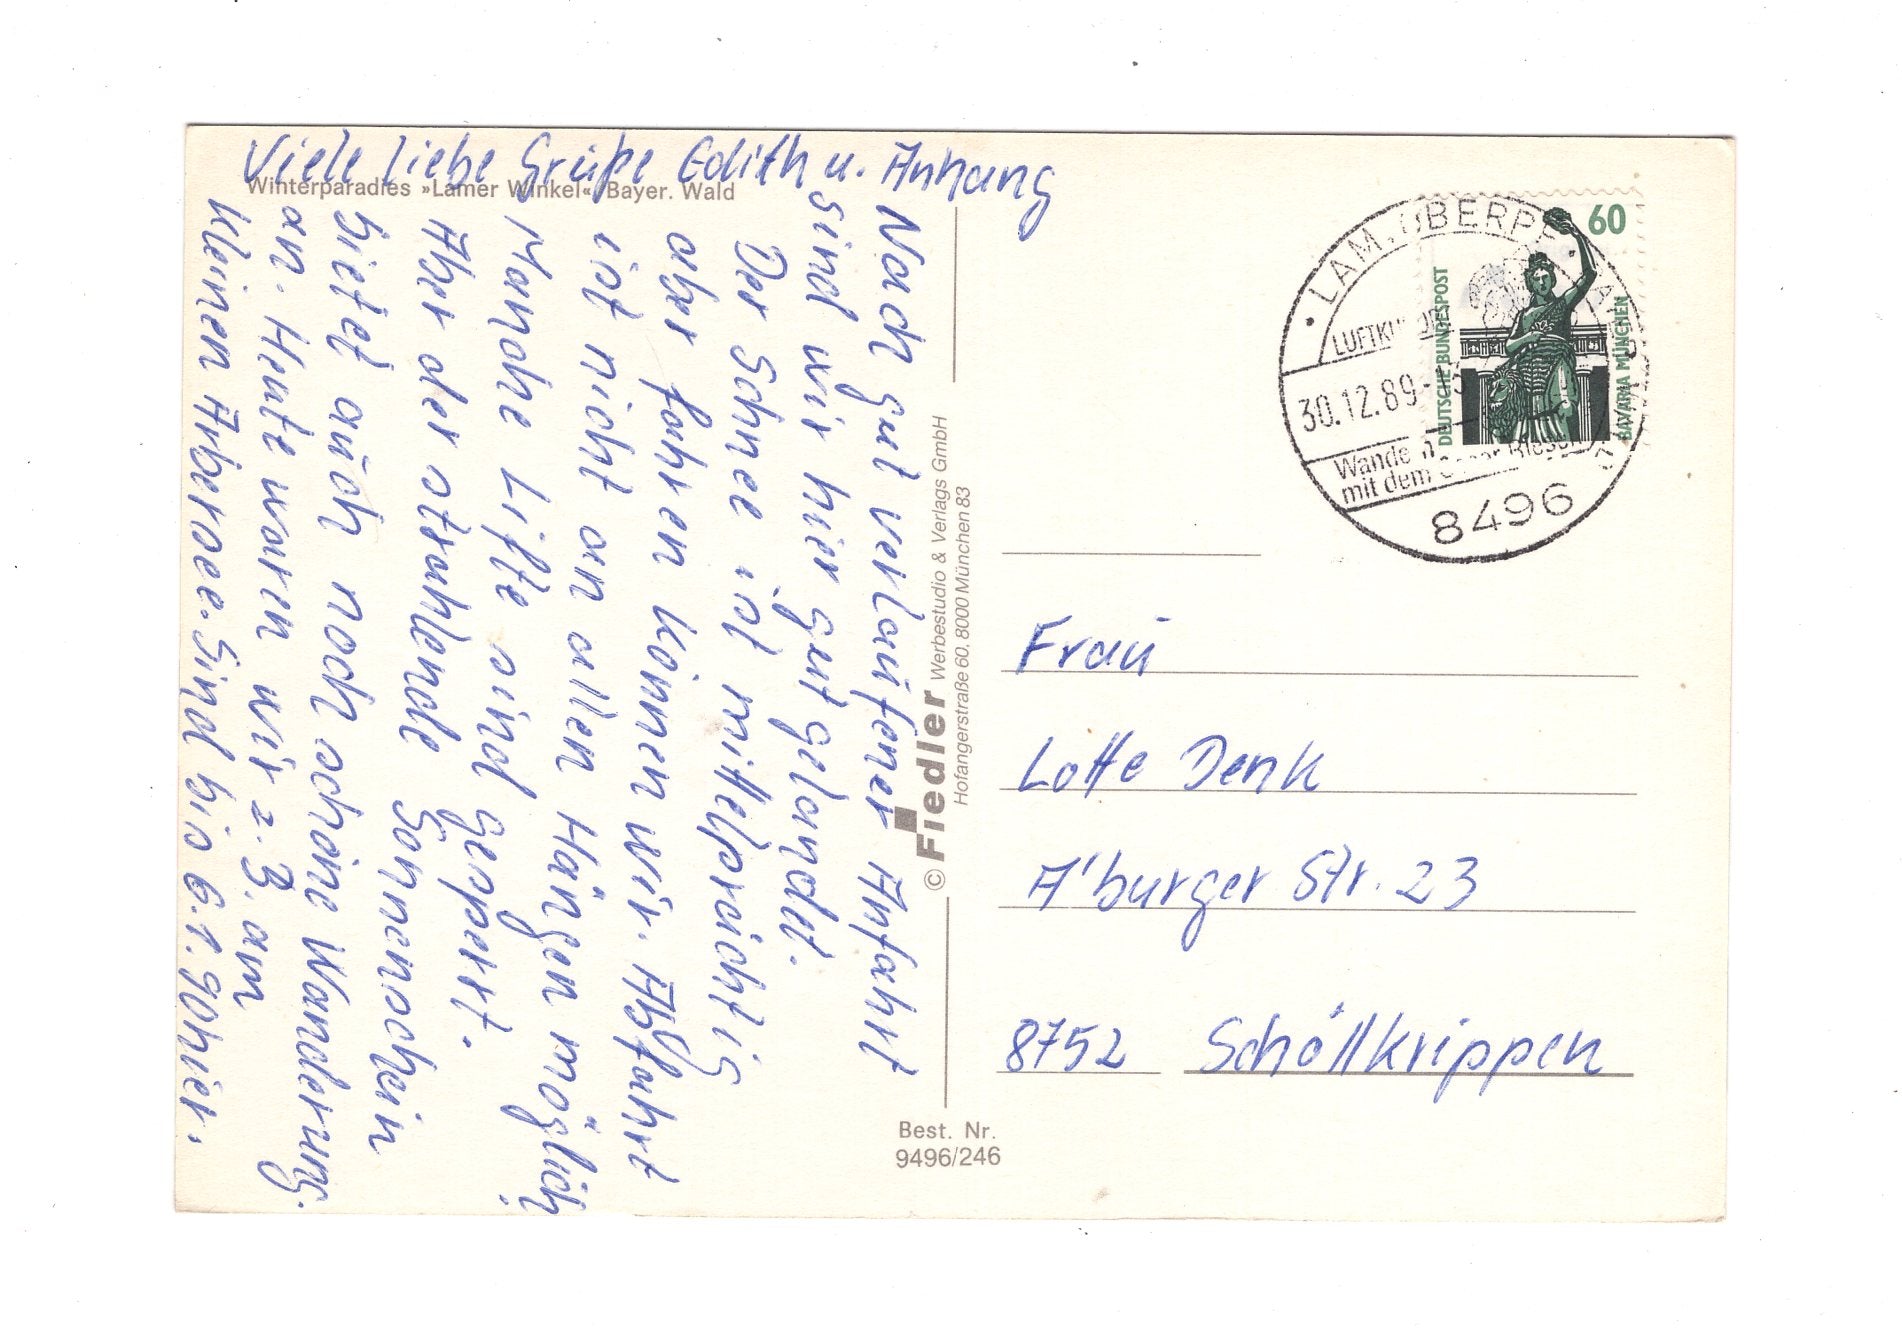 Viele liebe Grüße Edith u. Anhang
Winterparadies »Lamer Winkel« Bayer. Wald
Nach gut verlaufener Anfahrt
sind wir hier gut gelandet.
Der Schnee ist mittelprächtig
aber fahren können wir. Abfahrt
ist nicht an allen Hängen möglich,
Manche Lifte sind gesperrt.
Aber der strahlende Sonnenschein
bietet auch noch schöne Wanderung.
an. Heute waren wir z. B. am
kleinen Arbersee. Sind bis 6.1.90 hier.
© Fiedler Werbestudio & Verlags GmbH
Hofangerstraße 60, 8000 München 83
Best. Nr.
9496/246
60
DEUTSCHE BUNDESPOST
BAVARIA MÜNCHEN
LAM, OBERPF
30.12.89
mit dem
8496
Frau
Lotte Denk
A'burger Str. 23
8752 Schöllkrippen